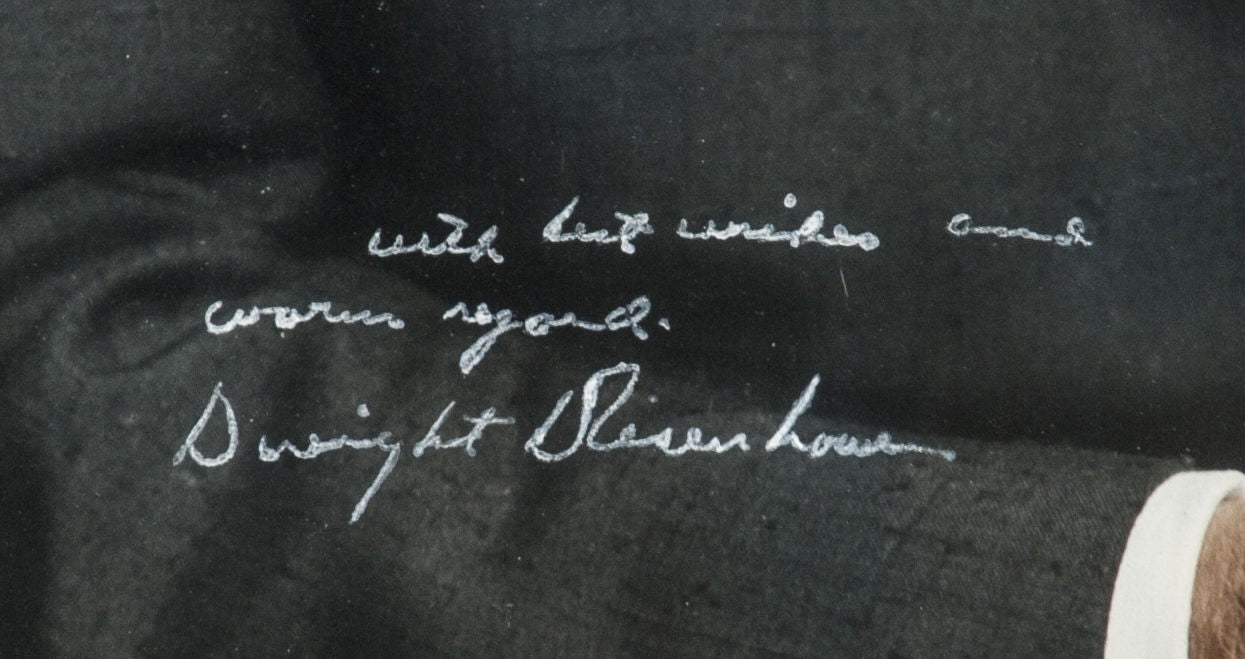 with best wishes and
warm regard.
Dwight D Eisenhower